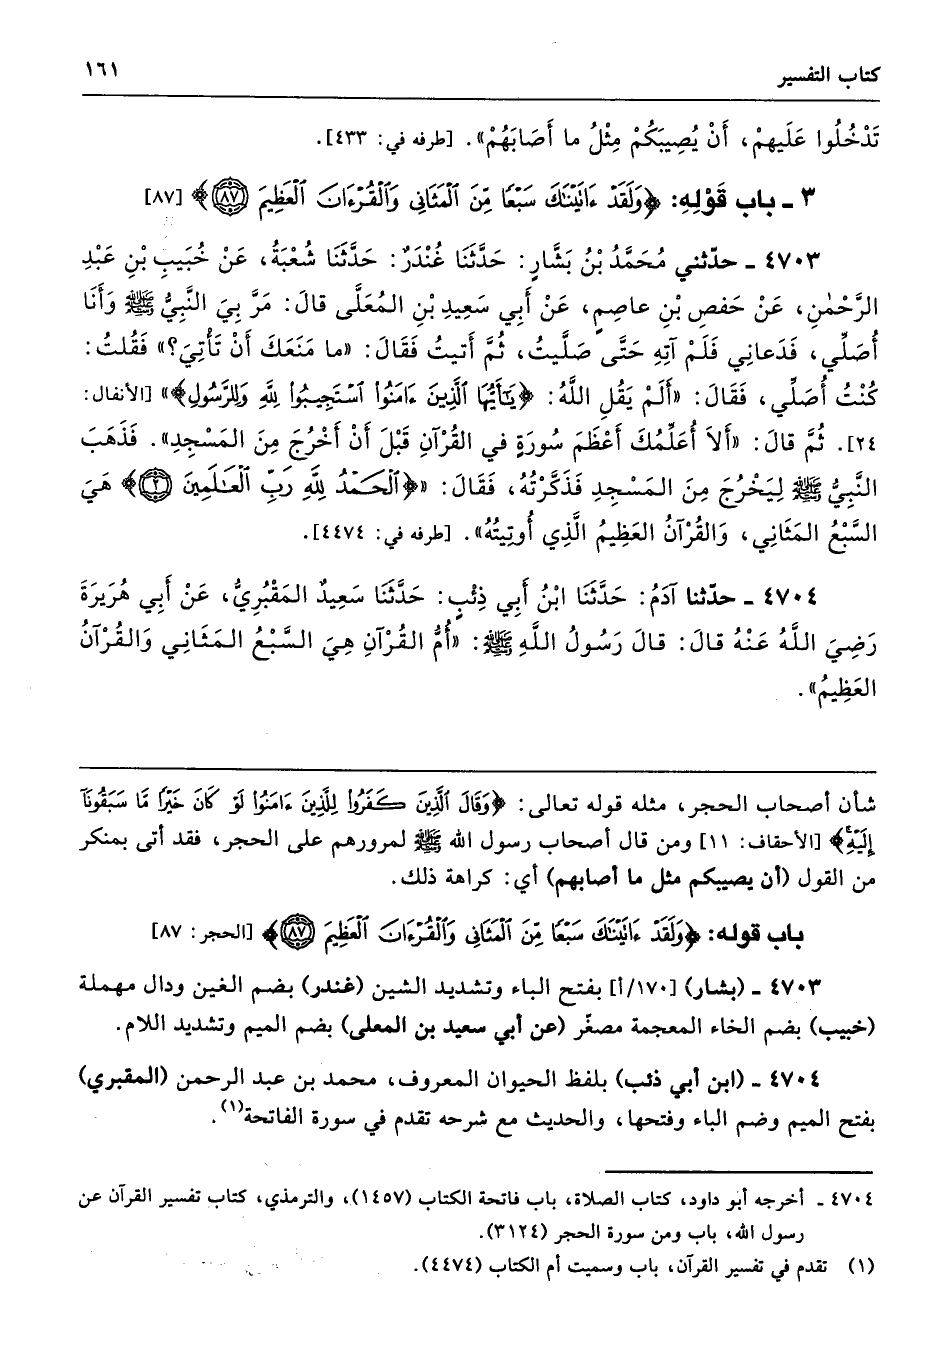 كتاب التفسير ١٦١
تَدْخُلُوا عَلَيهِمْ، أَنْ يُصِيبَكُمْ مِثْلُ ما أَصَابَهُمْ». [طرفه في: ٤٣٣].
٣ ـ باب قَوْلِهِ: ﴿وَلَقَدْ ءَاتَيْنَٰكَ سَبْعًا مِّنَ ٱلْمَثَانِى وَٱلْقُرْءَانَ ٱلْعَظِيمَ ٨٧﴾ [٨٧]
٤٧٠٣ ـ حدّثني مُحَمَّدُ بْنُ بَشَّارٍ: حَدَّثَنَا غُنْدَرٌ: حَدَّثَنَا شُعْبَةُ، عَنْ خُبَيبِ بْنِ عَبْدِ
الرَّحْمٰنِ، عَنْ حَفصِ بْنِ عاصِمٍ، عَنْ أَبِي سَعِيدِ بْنِ المُعَلَّى قالَ: مَرَّ بِيَ النَّبِيُّ ﷺ وَأَنَا
أُصَلِّي، فَدَعانِي فَلَمْ آتِهِ حَتَّى صَلَّيتُ، ثُمَّ أَتيتُ فَقَالَ: «ما مَنَعَكَ أَنْ تَأْتِيَ؟» فَقُلتُ:
كُنْتُ أُصَلِّي، فَقَالَ: «أَلَمْ يَقُلِ اللَّهُ: ﴿يَٰٓأَيُّهَا ٱلَّذِينَ ءَامَنُوا۟ ٱسْتَجِيبُوا۟ لِلَّهِ وَلِلرَّسُولِ﴾» [الأنفال:
٢٤]. ثُمَّ قالَ: «أَلاَ أُعَلِّمُكَ أَعْظَمَ سُورَةٍ في القُرْآنِ قَبْلَ أَنْ أَخْرُجَ مِنَ المَسْجِدِ». فَذَهَبَ
النَّبِيُّ ﷺ لِيَخْرُجَ مِنَ المَسْجِدِ فَذَكَّرْتُهُ، فَقَالَ: «﴿ٱلْحَمْدُ لِلَّهِ رَبِّ ٱلْعَٰلَمِينَ ٢﴾ هِيَ
السَّبْعُ المَثَانِي، وَالقُرْآنُ العَظِيمُ الَّذِي أُوتِيتُهُ». [طرفه في: ٤٤٧٤].
٤٧٠٤ ـ حدّثنا آدَمُ: حَدَّثَنَا ابْنُ أَبِي ذِئْبٍ: حَدَّثَنَا سَعِيدٌ المَقْبُرِيُّ، عَنْ أَبِي هُرَيرَةَ
رَضِيَ اللَّهُ عَنْهُ قالَ: قالَ رَسُولُ اللَّهِ ﷺ: «أُمُّ القُرْآنِ هِيَ السَّبْعُ المَثَانِي وَالقُرْآنُ
العَظِيمُ».
شأن أصحاب الحجر، مثله قوله تعالى: ﴿وَقَالَ ٱلَّذِينَ كَفَرُوا۟ لِلَّذِينَ ءَامَنُوا۟ لَوْ كَانَ خَيْرًا مَّا سَبَقُونَآ
إِلَيْهِ﴾ [الأحقاف: ١١] ومن قال أصحاب رسول الله ﷺ لمرورهم على الحجر، فقد أتى بمنكر
من القول (أن يصيبكم مثل ما أصابهم) أي: كراهة ذلك.
باب قوله: ﴿وَلَقَدْ ءَاتَيْنَٰكَ سَبْعًا مِّنَ ٱلْمَثَانِى وَٱلْقُرْءَانَ ٱلْعَظِيمَ ٨٧﴾ [الحجر: ٨٧]
٤٧٠٣ ـ (بشار) [١٧٠/أ] بفتح الباء وتشديد الشين (غندر) بضم الغين ودال مهملة
(خبيب) بضم الخاء المعجمة مصغّر (عن أبي سعيد بن المعلى) بضم الميم وتشديد اللام.
٤٧٠٤ ـ (ابن أبي ذئب) بلفظ الحيوان المعروف، محمد بن عبد الرحمن (المقبري)
بفتح الميم وضم الباء وفتحها، والحديث مع شرحه تقدم في سورة الفاتحة(١).
٤٧٠٤ ـ أخرجه أبو داود، كتاب الصلاة، باب فاتحة الكتاب (١٤٥٧)، والترمذي، كتاب تفسير القرآن عن
رسول الله، باب ومن سورة الحجر (٣١٢٤).
(١) تقدم في تفسير القرآن، باب وسميت أم الكتاب (٤٤٧٤).